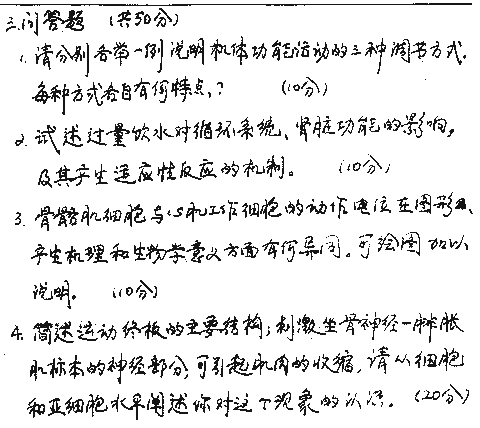 三.问答题 (共50分)
1. 请分别各举一例说明机体功能活动的三种调节方式.
每种方式各自有何特点.? (10分)
2. 试述过量饮水对循环系统、肾脏功能的影响,
及其产生适应性反应的机制。 (10分)
3. 骨骼肌细胞与心肌工作细胞的动作电位在图形、
产生机理和生物学意义方面有何异同。可绘图加以
说明. (10分)
4. 简述运动终板的主要结构;刺激坐骨神经一腓肠
肌标本的神经部分,可引起肌肉的收缩,请从细胞
和亚细胞水平阐述你对这个现象的认识. (20分)